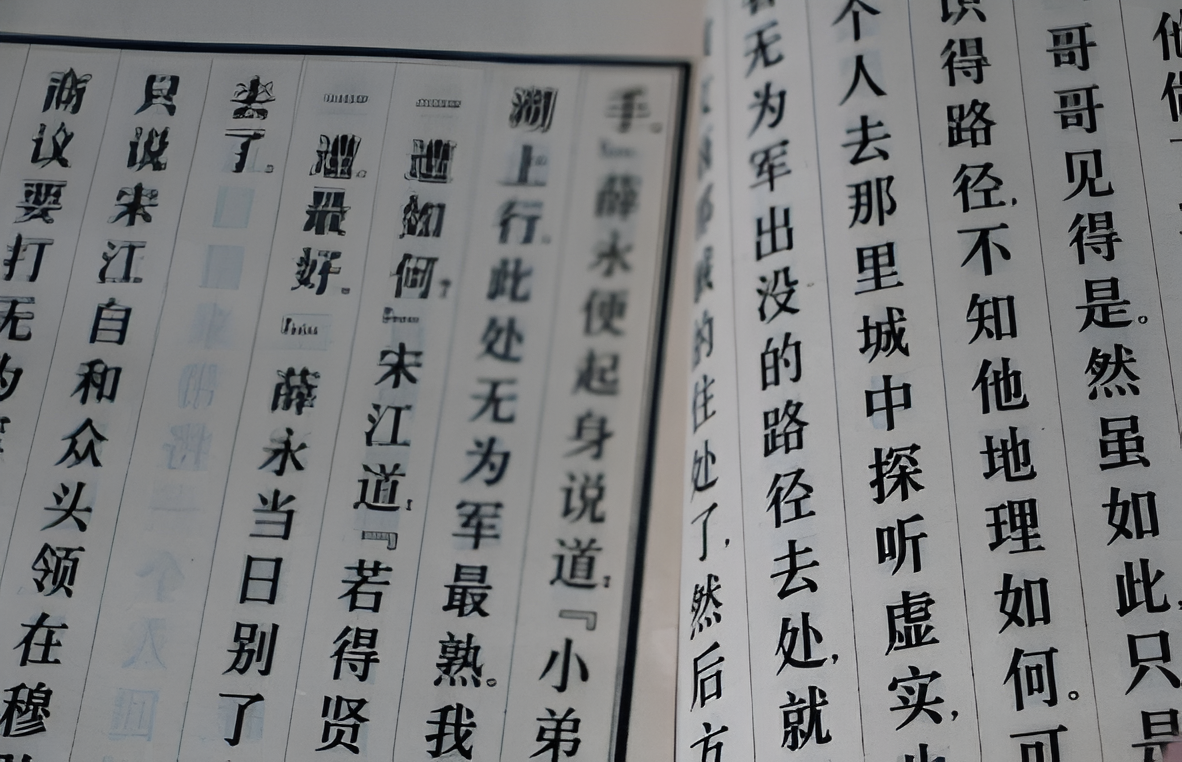 哥哥见得是。然虽如此,只是
识得路径,不知他地理如何。可
个人去那里城中探听虚实,
无为军出没的路径去处,就
的住处了,然后方
手。薛永便起身说道:『小弟
上行。此处无为军最熟。我
如何?宋江道:『若得贤
最好。薛永当日别了
去了。
只说宋江自和众头领在穆
商议要打无为